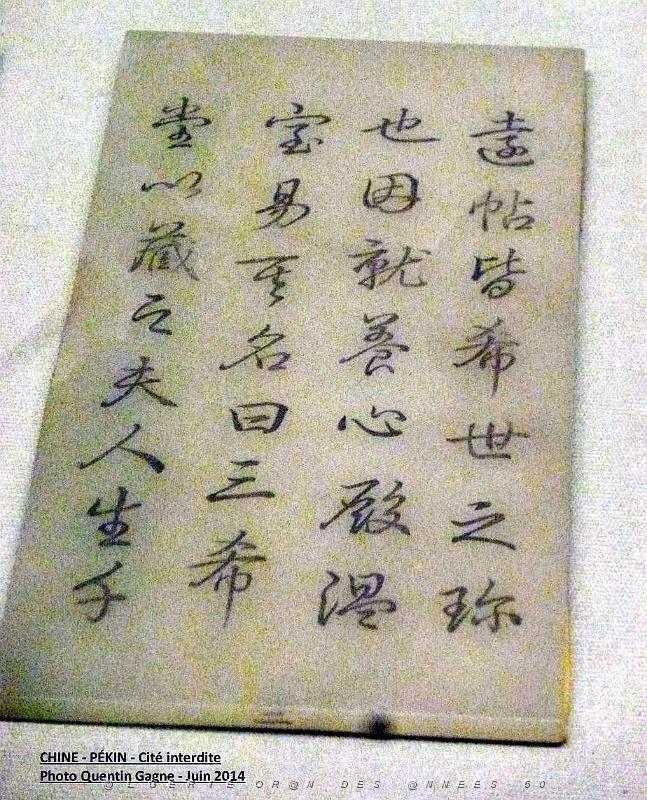 遠帖皆希世之珎
也因就養心殿温
室易其名曰三希
堂以藏之夫人生千
二
CHINE - PÉKIN - Cité interdite
Photo Quentin Gagne - Juin 2014
@LGERIE OR@N DES @NNEES 50